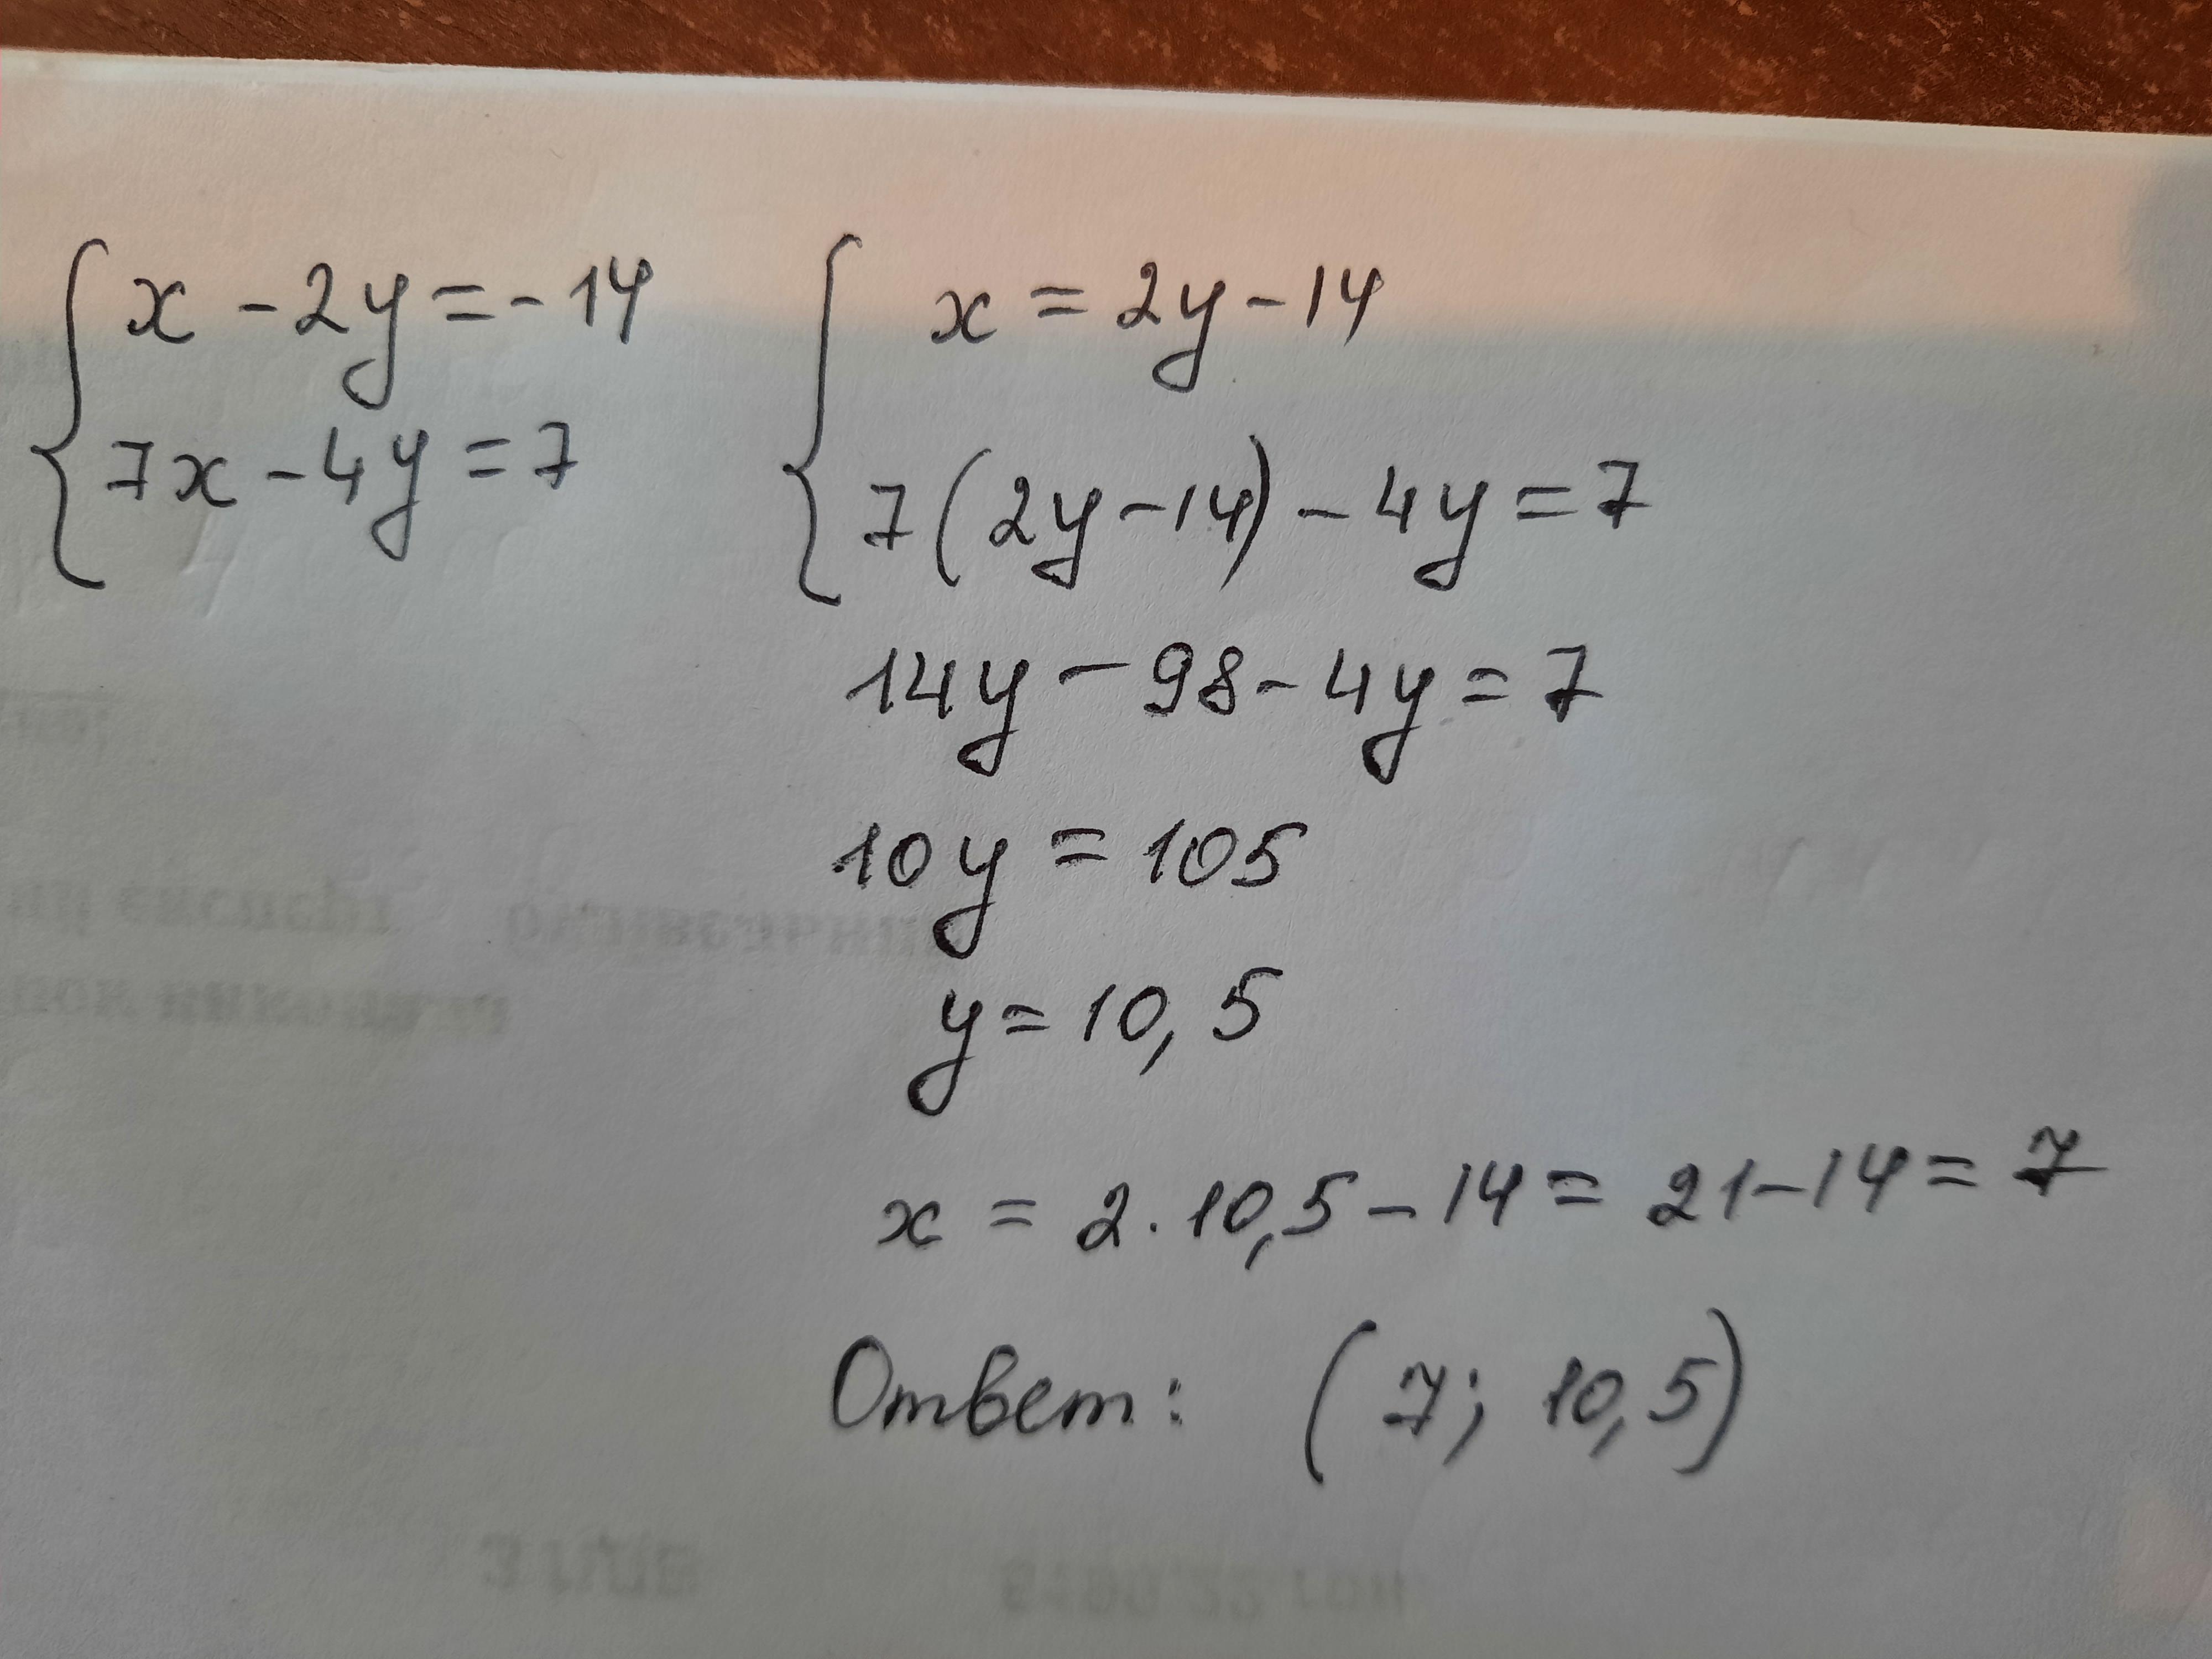 x - 2y = - 14
7x - 4y = 7
x = 2y - 14
7(2y - 14) - 4y = 7
14y - 98 - 4y = 7
10y = 105
y = 10,5
x = 2 · 10,5 - 14 = 21 - 14 = 7
Ответ: (7; 10,5)